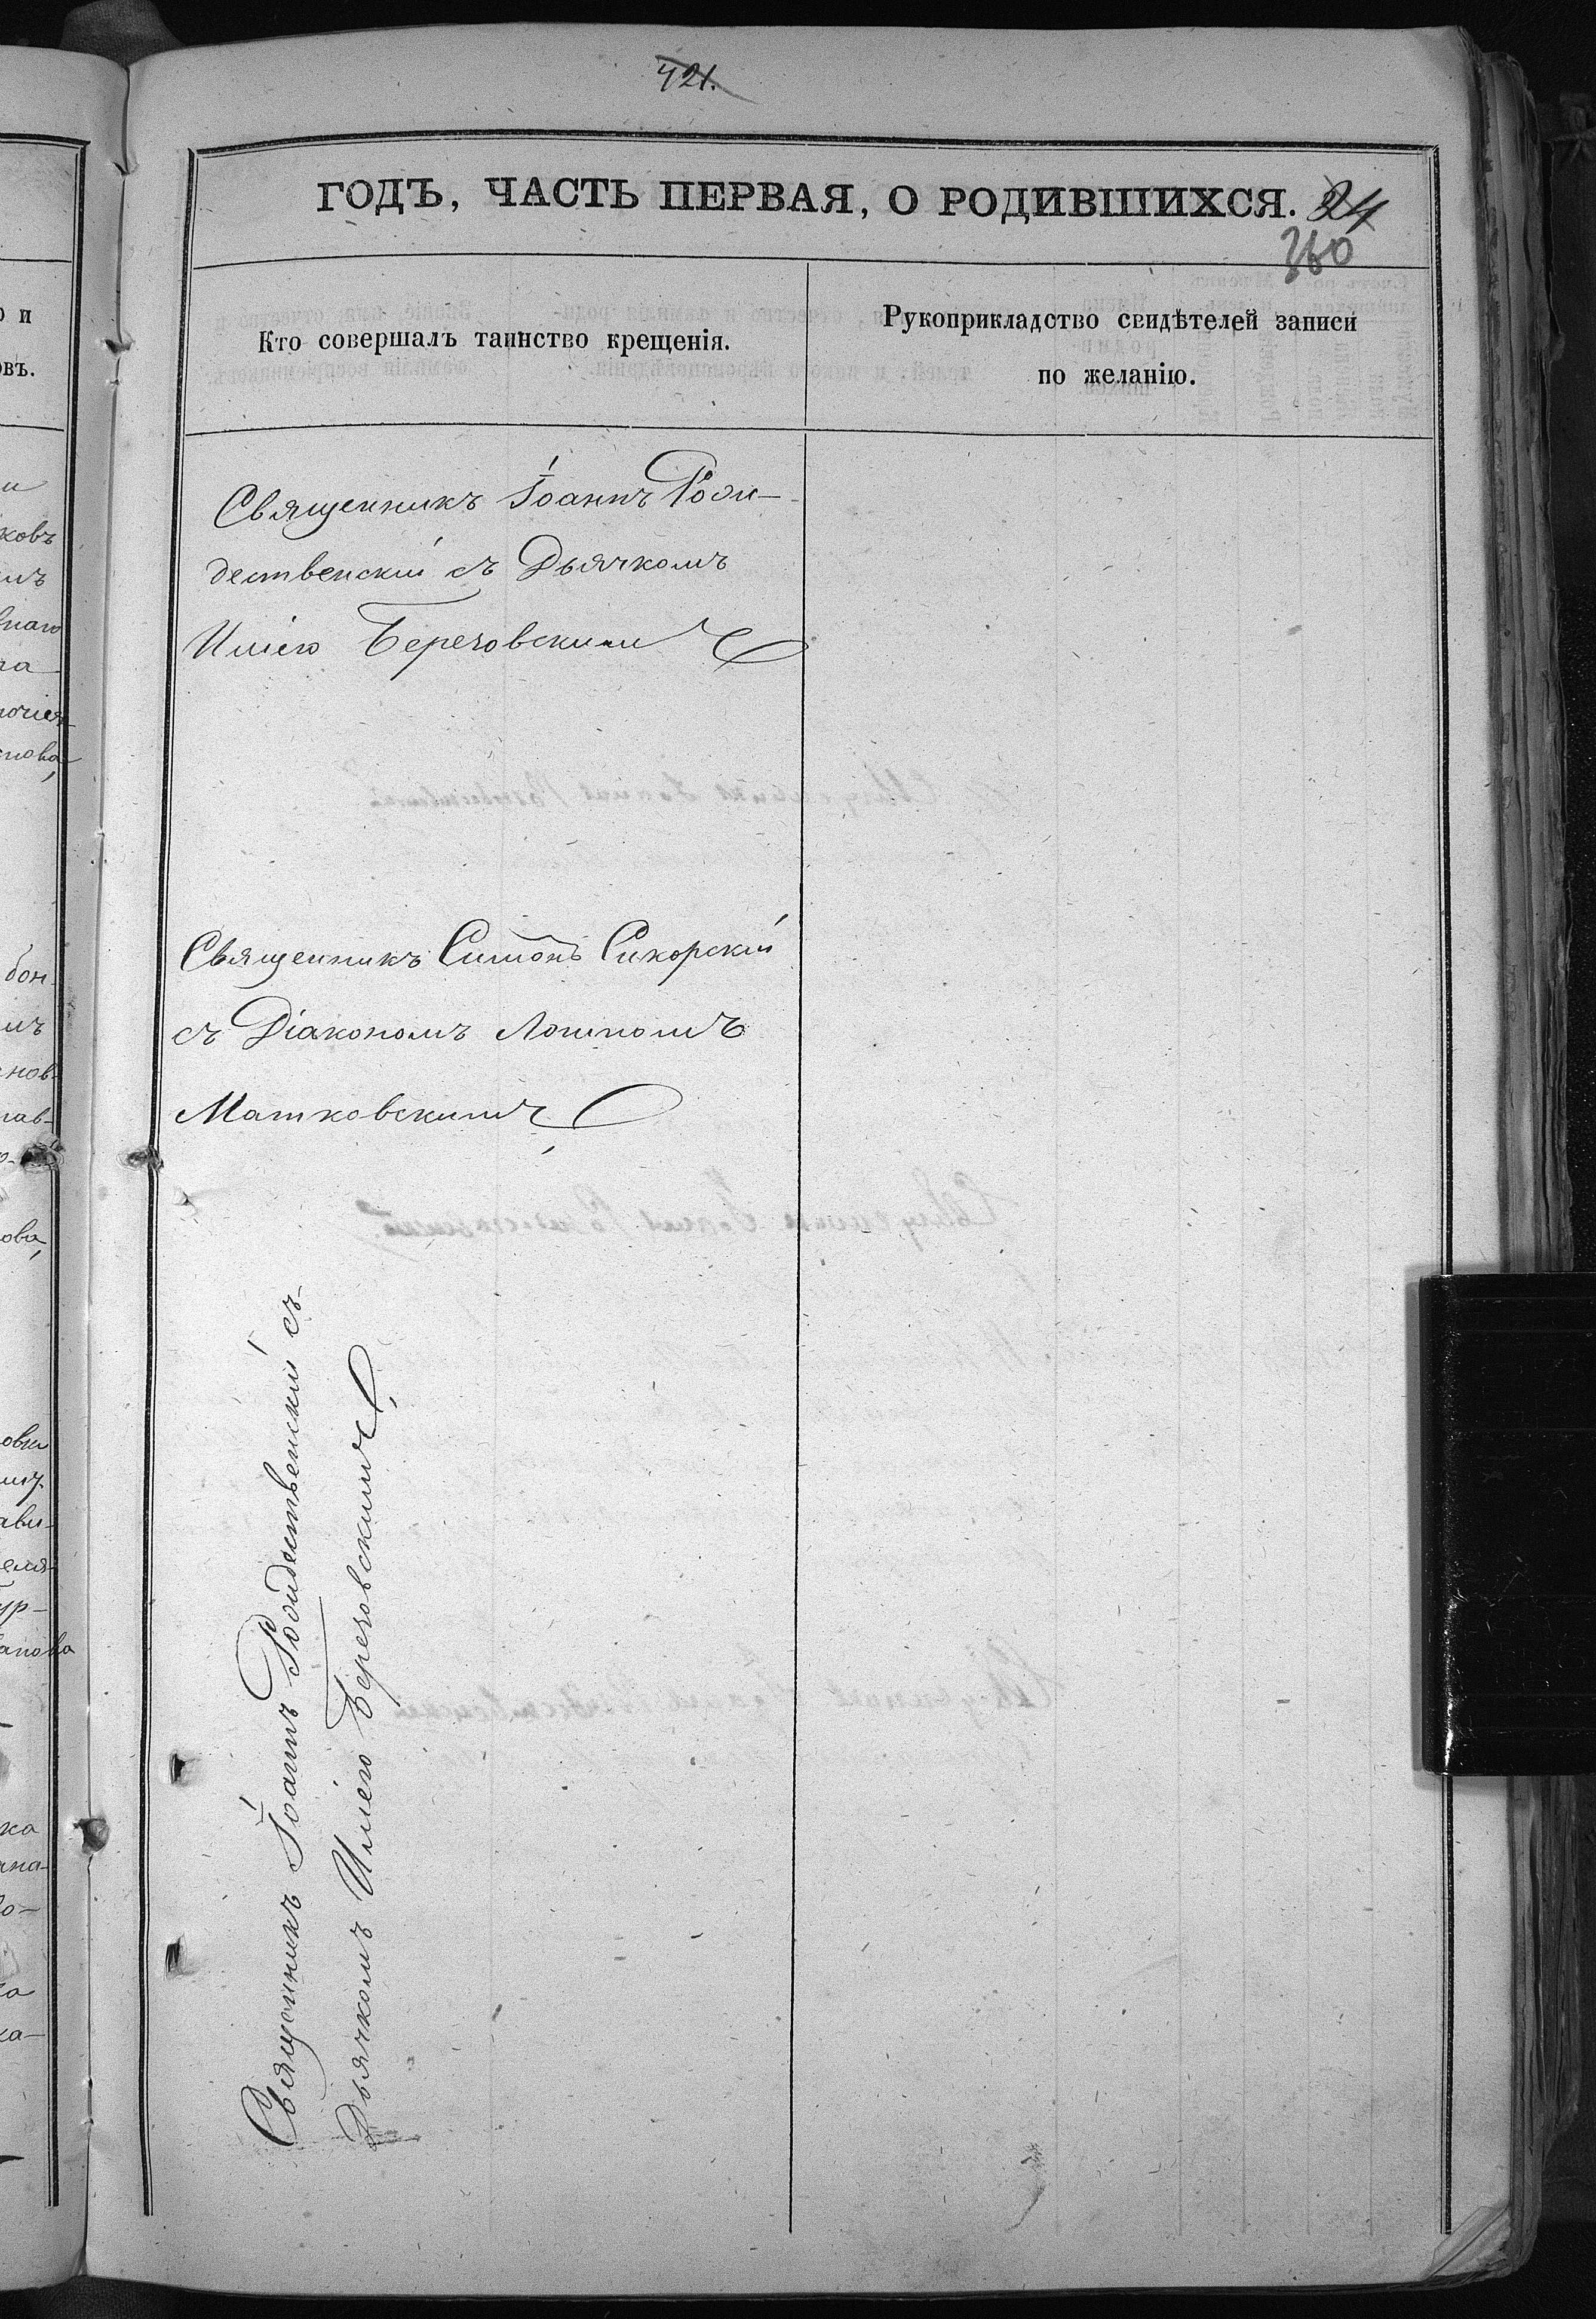 421.
ГОДЪ, ЧАСТЬ ПЕРВАЯ, О РОДИВШИХСЯ. 24
360
Кто совершалъ таинство крещенія.
Рукоприкладство свидѣтелей записи
по желанію.
Священникъ Іоаннъ Рож-
дественскій съ Дьячкомъ
Иліею Березовскимъ
Священникъ Симонъ Сикорскій
съ Діакономъ Логиномъ
Матковскимъ
Священникъ Іоаннъ Рождественскій съ
Дьячкомъ Иліею Березовскимъ